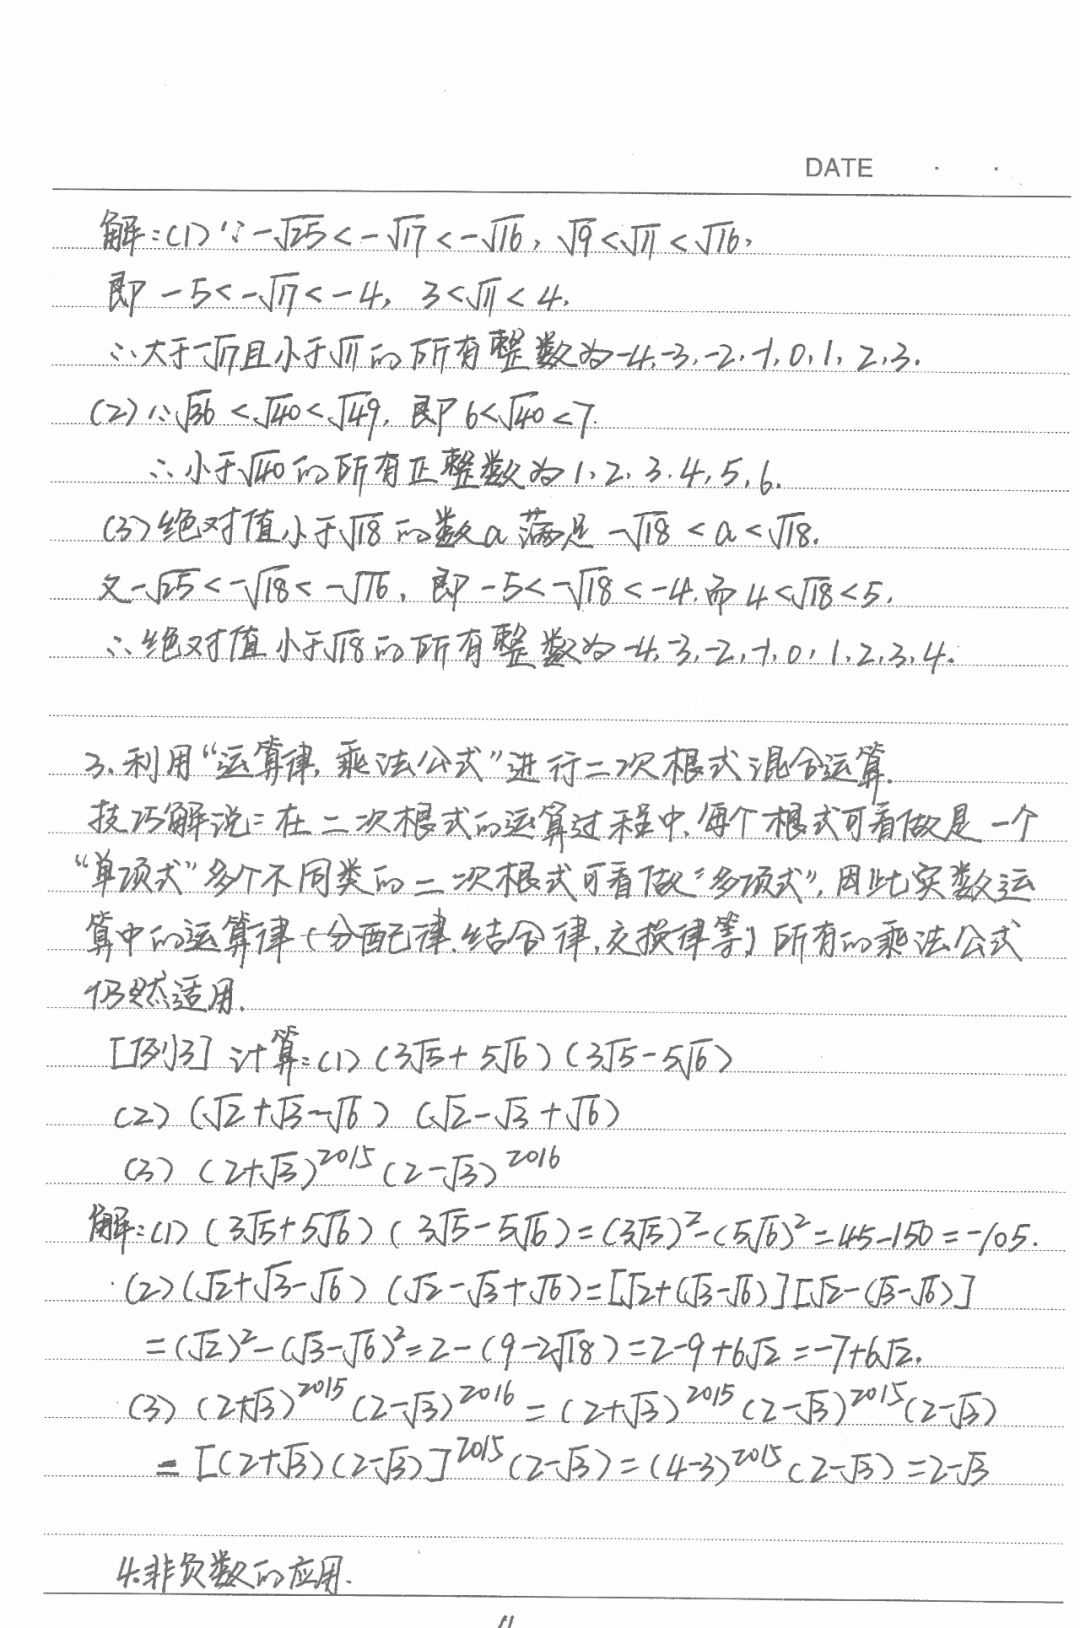 DATE · ·
解:(1)∵-√25<-√17<-√16, √9<√11<√16,
即 -5<-√17<-4, 3<√11<4,
∴大于-√17且小于√11的所有整数为-4,-3,-2,-1,0,1,2,3.
(2)∵√36<√40<√49, 即6<√40<7.
∴小于√40的所有正整数为1,2,3,4,5,6.
(3)绝对值小于√18的数a满足-√18<a<√18.
又-√25<-√18<-√16, 即-5<-√18<-4,而4<√18<5,
∴绝对值小于√18的所有整数为-4,-3,-2,-1,0,1,2,3,4.
3、利用“运算律,乘法公式”进行二次根式混合运算.
技巧解说:在二次根式的运算过程中,每个根式可看做是一个
“单项式”多个不同类的二次根式可看做“多项式”,因此实数运
算中的运算律(分配律,结合律,交换律等)所有的乘法公式
仍然适用.
[例3]计算:(1)(3√5+5√6)(3√5-5√6)
(2)(√2+√3-√6)(√2-√3+√6)
(3)(2+√3)²⁰¹⁵(2-√3)²⁰¹⁶
解:(1)(3√5+5√6)(3√5-5√6)=(3√5)²-(5√6)²=45-150=-105.
(2)(√2+√3-√6)(√2-√3+√6)=[√2+(√3-√6)][√2-(√3-√6)]
=(√2)²-(√3-√6)²=2-(9-2√18)=2-9+6√2=-7+6√2.
(3)(2+√3)²⁰¹⁵(2-√3)²⁰¹⁶=(2+√3)²⁰¹⁵(2-√3)²⁰¹⁵(2-√3)
=[(2+√3)(2-√3)]²⁰¹⁵(2-√3)=(4-3)²⁰¹⁵(2-√3)=2-√3
4.非负数的应用.